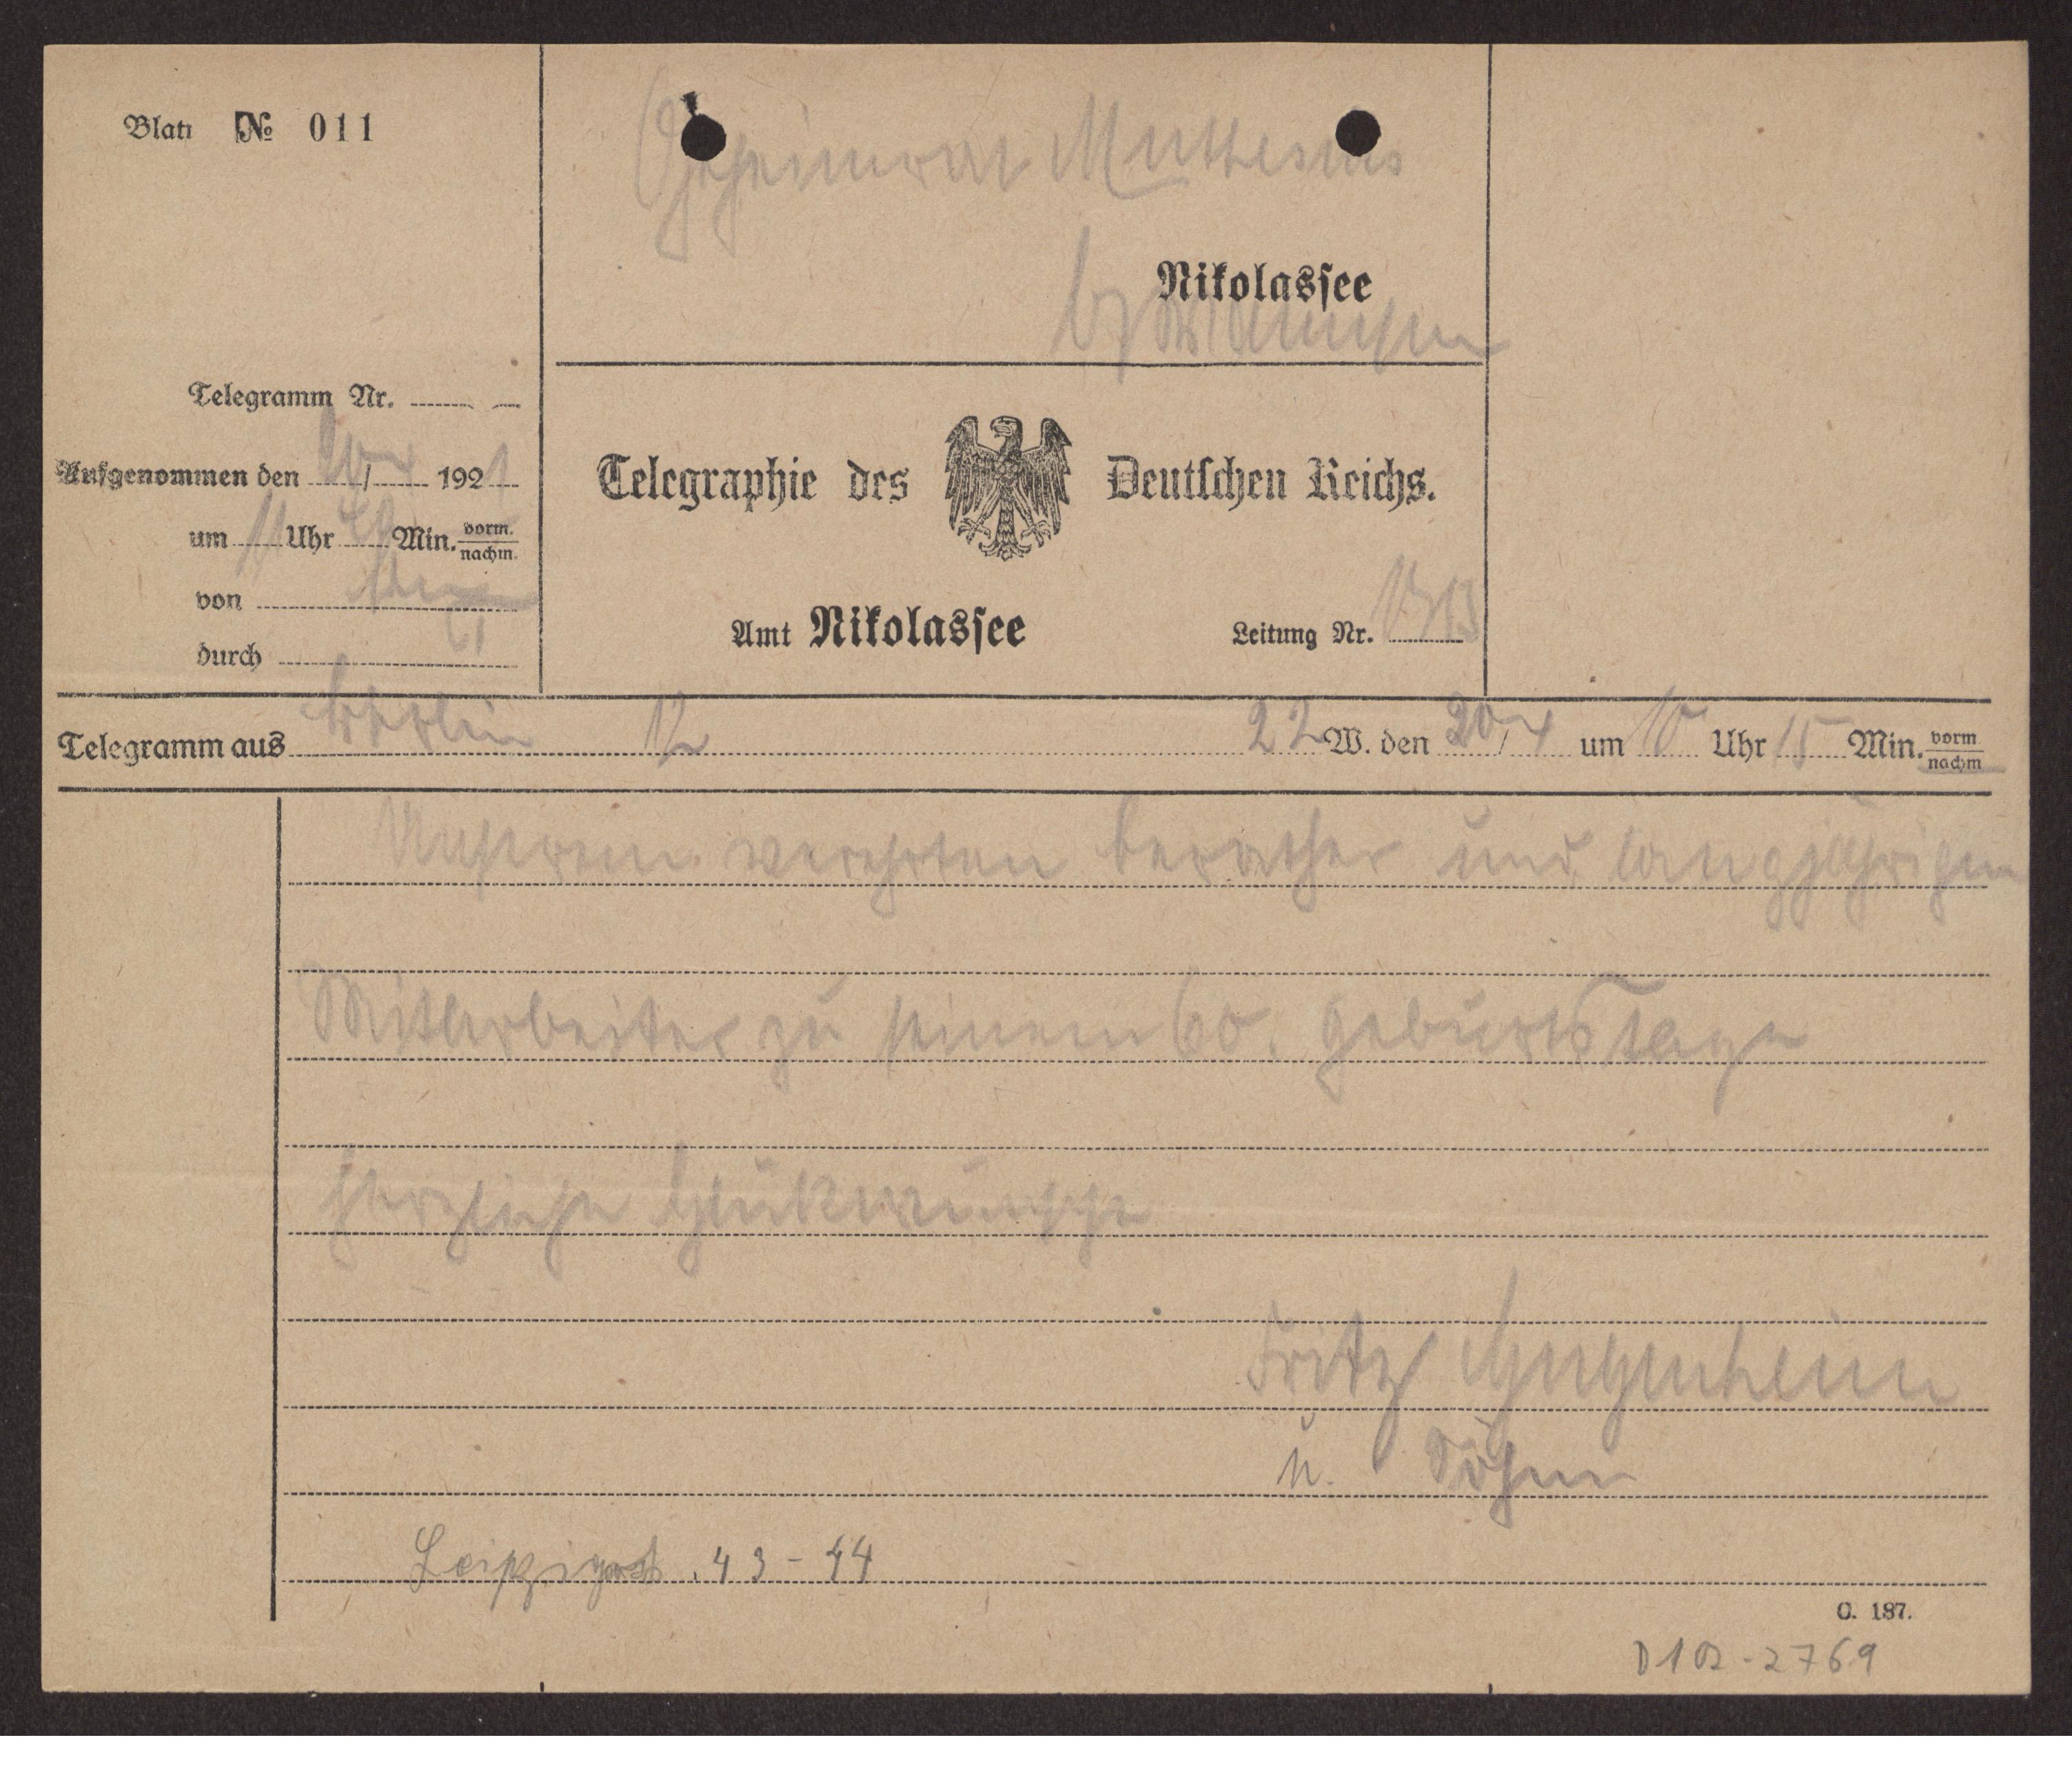 Blatt № 011
Geheimrat Muthesius
Nikolassee
bz Wannsee
Telegramm Nr.
Aufgenommen den 20/4 1921
um 11 Uhr Min. vorm. nachm.
von
durch
Telegraphie des Deutschen Reichs.
Amt Nikolassee
Leitung Nr.
Telegramm aus Berlin 12 22 W. den 20/4 um 10 Uhr 15 Min. vorm nachm
Unserem verehrten berather und langjährigen
Mitarbeiter zu seinem 60. geburtstage
herzliche glükwünsche
Fritz Gugenheim
u. Söhne
Leipzigerst. 43-44
C. 187.
D 102-2769